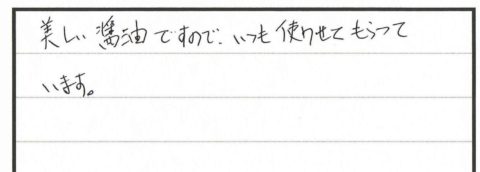 美しい醬油ですので、いつも使わせてもらって
います。